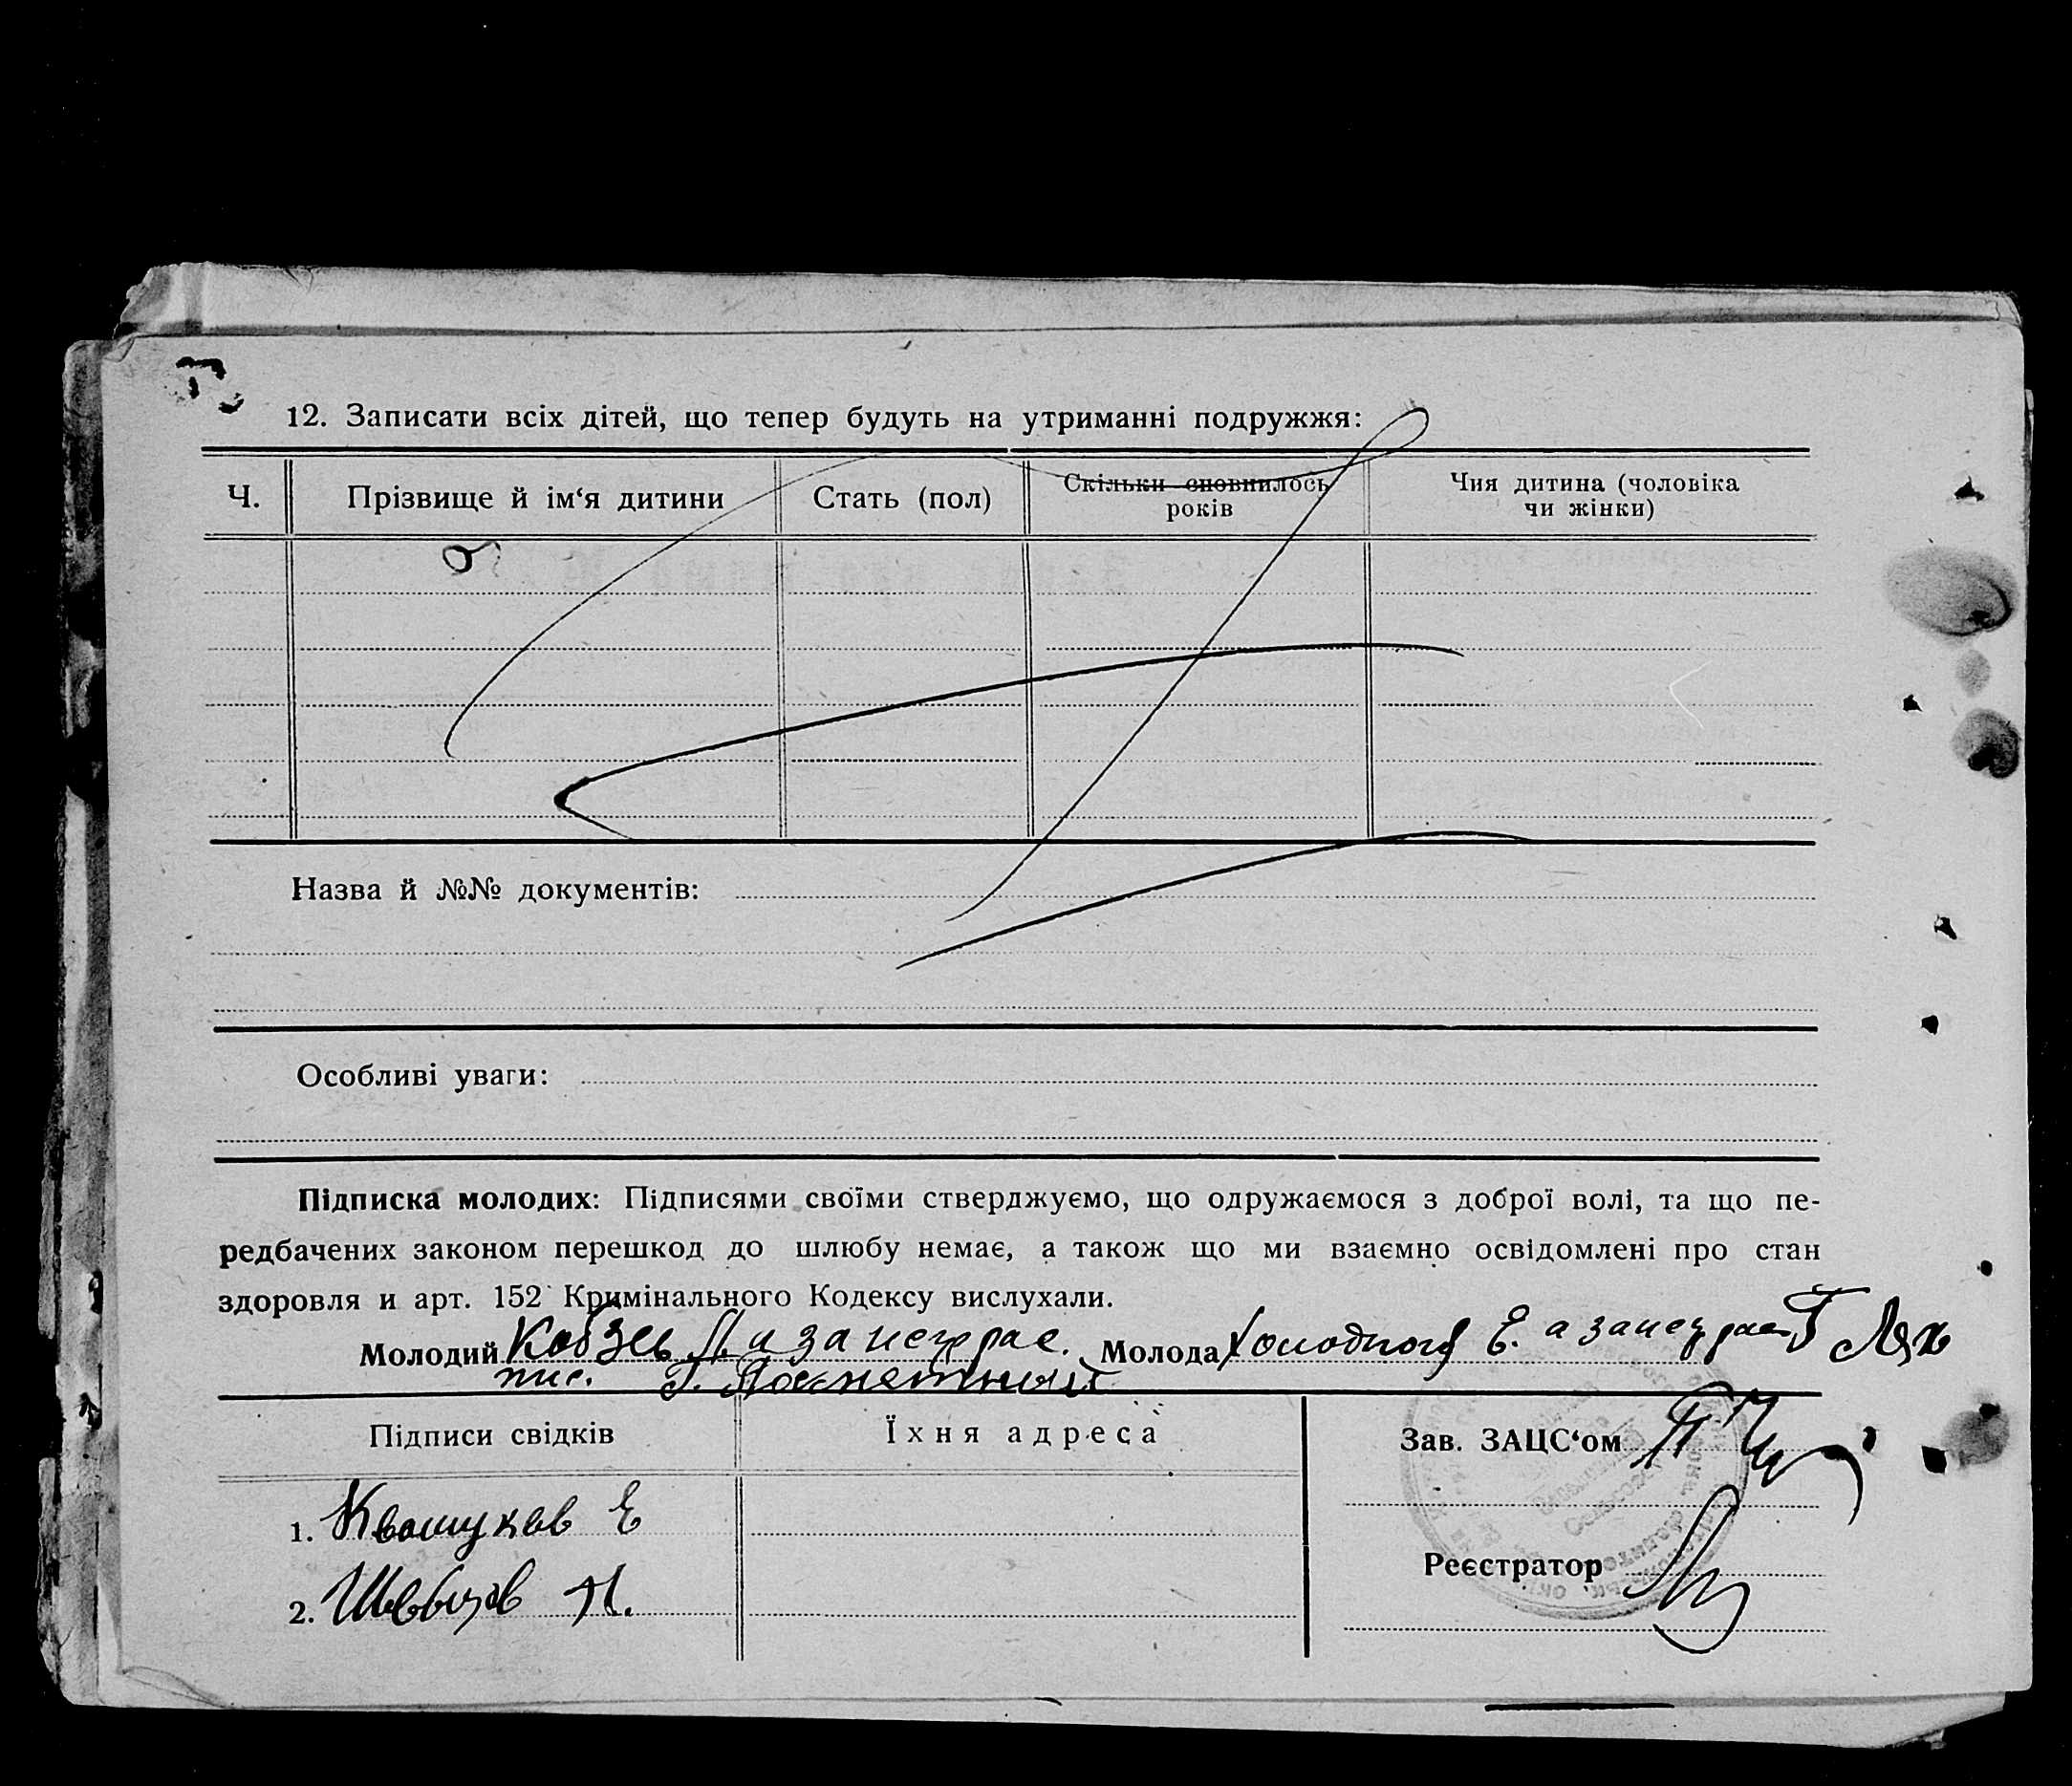 12. Записати всіх дітей, що тепер будуть на утриманні подружжя:
Ч.
Прізвище й ім‘я дитини
Стать (пол)
Скільки сповнилось
років
Чия дитина (чоловіка
чи жінки)
Назва й №№ документів:
Особливі уваги:
Підписка молодих: Підписями своїми стверджуємо, що одружаємося з доброї волі, та що пе-
редбачених законом перешкод до шлюбу немає, а також що ми взаємно освідомлені про стан
здоровля и арт. 152 Кримінального Кодексу вислухали.
Молодий Кобзев а за негра Молода Холодной Е. а за Лях
Підписи свідків
Їхня адреса
Зав. ЗАЦС‘ом
1. Е
2. Шевцов
Реєстратор